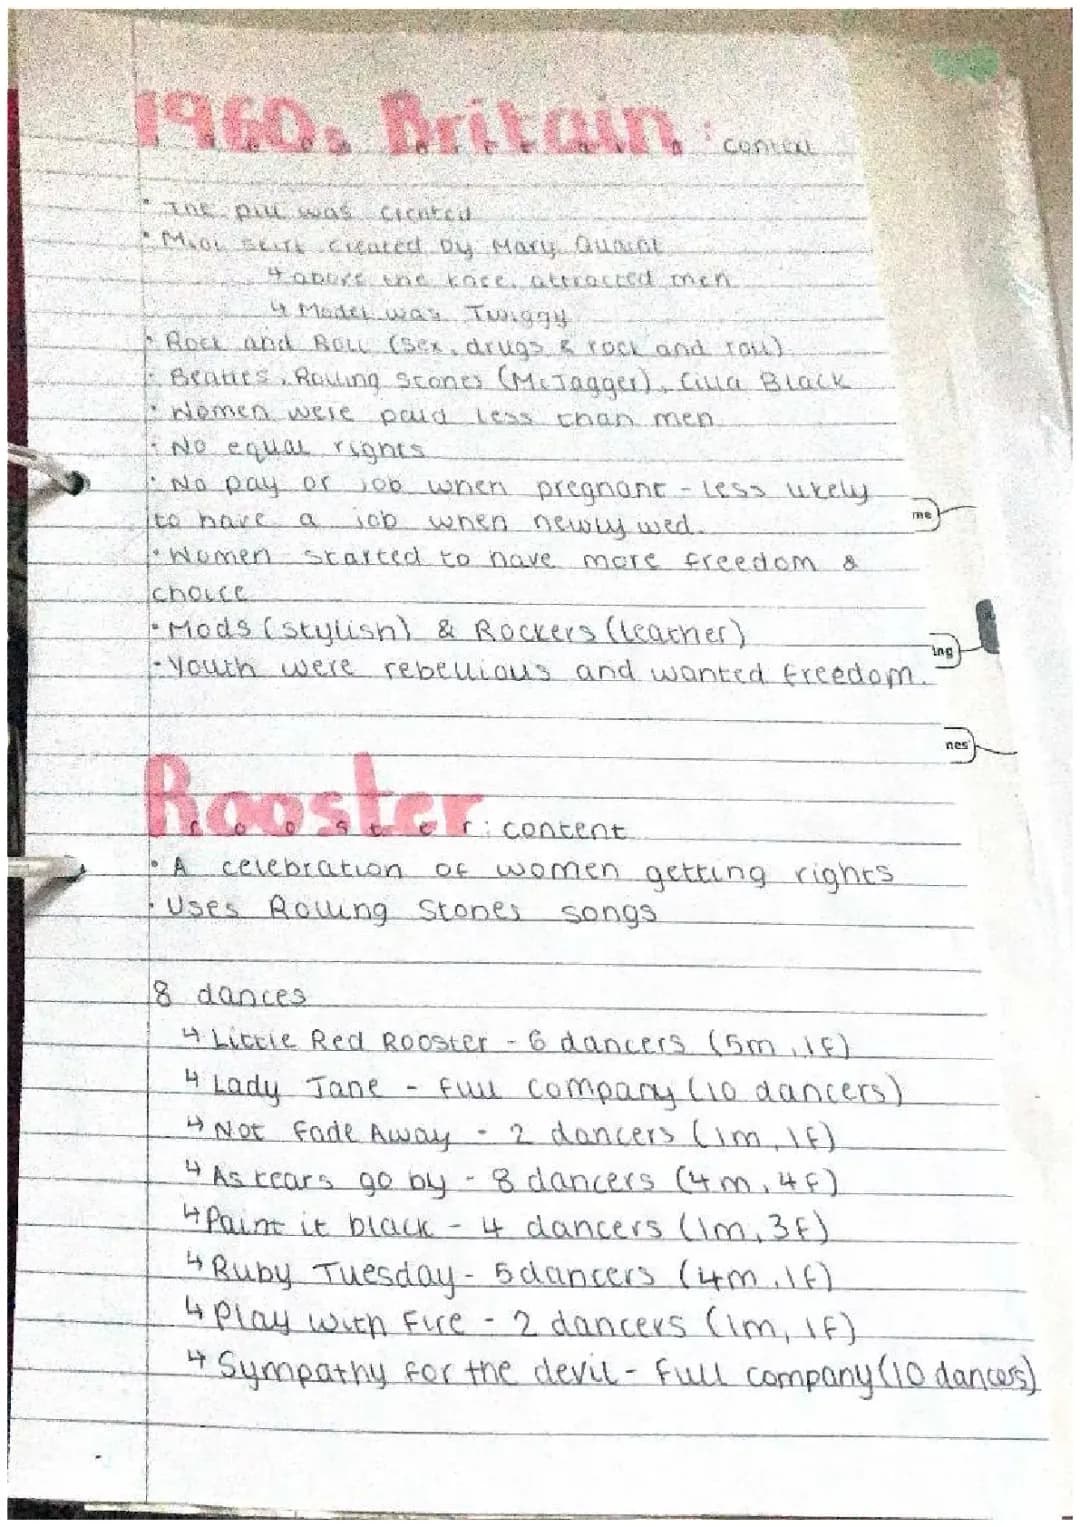 1960s Britain: context
• The pill was created
• Mini skirt created by Mary Quaint
↳ above the knee, attracted men
↳ Model was Twiggy
• Rock and Roll (sex, drugs & rock and roll)
• Beatles, Rolling Stones (McJagger), Cilla Black
• Women were paid less than men
• No equal rights
• No pay or job when pregnant - less likely
to have a job when newly wed.
• Women started to have more freedom &
choice
• Mods (stylish) & Rockers (leather)
• Youth were rebellious and wanted freedom.
me
ing
nes
Rooster: content
• A celebration of women getting rights
• Uses Rolling Stones songs
8 dances
↳ Little Red Rooster - 6 dancers (5m, 1f)
↳ Lady Jane - full company (10 dancers)
↳ Not Fade Away - 2 dancers (1m, 1f)
↳ As tears go by - 8 dancers (4m, 4f)
↳ Paint it black - 4 dancers (1m, 3f)
↳ Ruby Tuesday - 5 dancers (4m, 1f)
↳ Play with Fire - 2 dancers (1m, 1f)
↳ Sympathy for the devil - Full company (10 dancers)